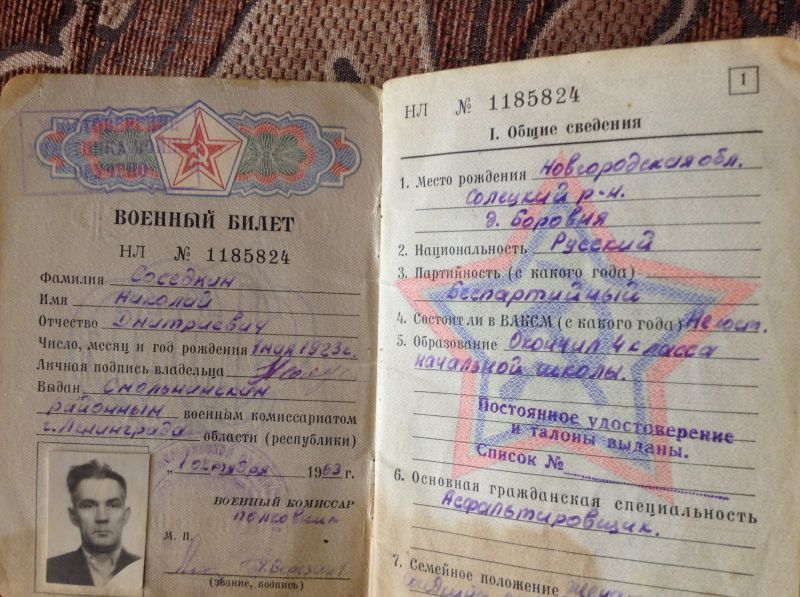 ВОЕННЫЙ БИЛЕТ
НЛ № 1185824
Фамилия Соседкин
Имя Николай
Отчество Дмитриевич
Число, месяц и год рождения 1 мая 1923 г.
Личная подпись владельца
Выдан Смольнинским
районным военным комиссариатом
г. Ленинграда области (республики)
„1 октября 1963 г.
ВОЕННЫЙ КОМИССАР
полковник
М. П.
(звание, подпись)
1
НЛ № 1185824
I. Общие сведения
1. Место рождения Новгородская обл.
Солецкий р-н.
д. Боровня
2. Национальность Русский
3. Партийность (с какого года)
Беспартийный
4. Состоит ли в ВЛКСМ (с какого года) Не сост.
5. Образование Окончил 4 класса
начальной школы.
Постоянное удостоверение
и талоны выданы.
Список №
6. Основная гражданская специальность
Асфальтировщик.
7. Семейное положение Жена